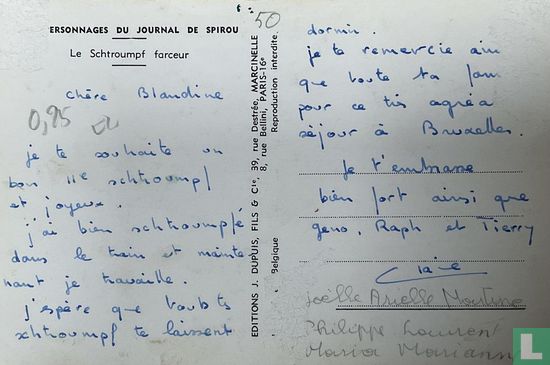 50
ERSONNAGES DU JOURNAL DE SPIROU
Le Schtroumpf farceur
Chère Blandine
0,25
je te souhaite un
bon 11e schtroumpf
et joyeux.
j'ai bien schtroumpfé
dans le train et mainte-
nant je travaille.
j'espère que
schtroumpf te laissent
EDITIONS J. DUPUIS, FILS & Cie, 39, rue Destrée, MARCINELLE
8, rue Bellini, PARIS-16e
Belgique Reproduction interdite.
dormir.
je te remercie ain
que toute ta fam
pour ce très agréa
séjour à Bruxelles.
Je t'embrasse
bien fort ainsi que
geno, Raph et Tierry
Claire
Joëlle Arielle Martine
Philippe Laurent
Maria Mariann
catawiki